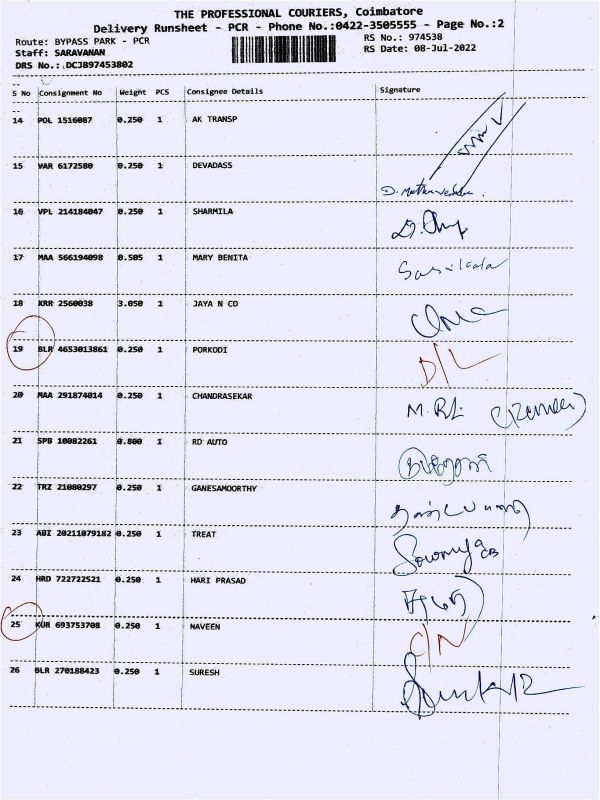 THE PROFESSIONAL COURIERS, Coimbatore
Delivery Runsheet - PCR - Phone No.:0422-3505555 - Page No.:2
Route: BYPASS PARK - PCR RS No.: 974538
Staff: SARAVANAN RS Date: 08-Jul-2022
DRS No.:.DCJB97453802
S No Consignment No Weight PCS Consignee Details Signature
14 POL 1516087 0.250 1 AK TRANSP
15 VAR 6172580 0.250 1 DEVADASS
16 VPL 214184047 0.250 1 SHARMILA
17 MAA 566194098 0.505 1 MARY BENITA
18 KRR 2560038 3.050 1 JAYA N CO
19 BLR 4653013861 0.250 1 PORKODI D/L
20 MAA 291874014 0.250 1 CHANDRASEKAR
21 SPB 10082261 0.800 1 RD AUTO
22 TRZ 21080297 0.250 1 GANESAMOORTHY
23 ABI 20211079182 0.250 1 TREAT Sowmya
24 HRD 722722521 0.250 1 HARI PRASAD
25 KUR 693753708 0.250 1 NAVEEN C/N
26 BLR 270188423 0.250 1 SURESH